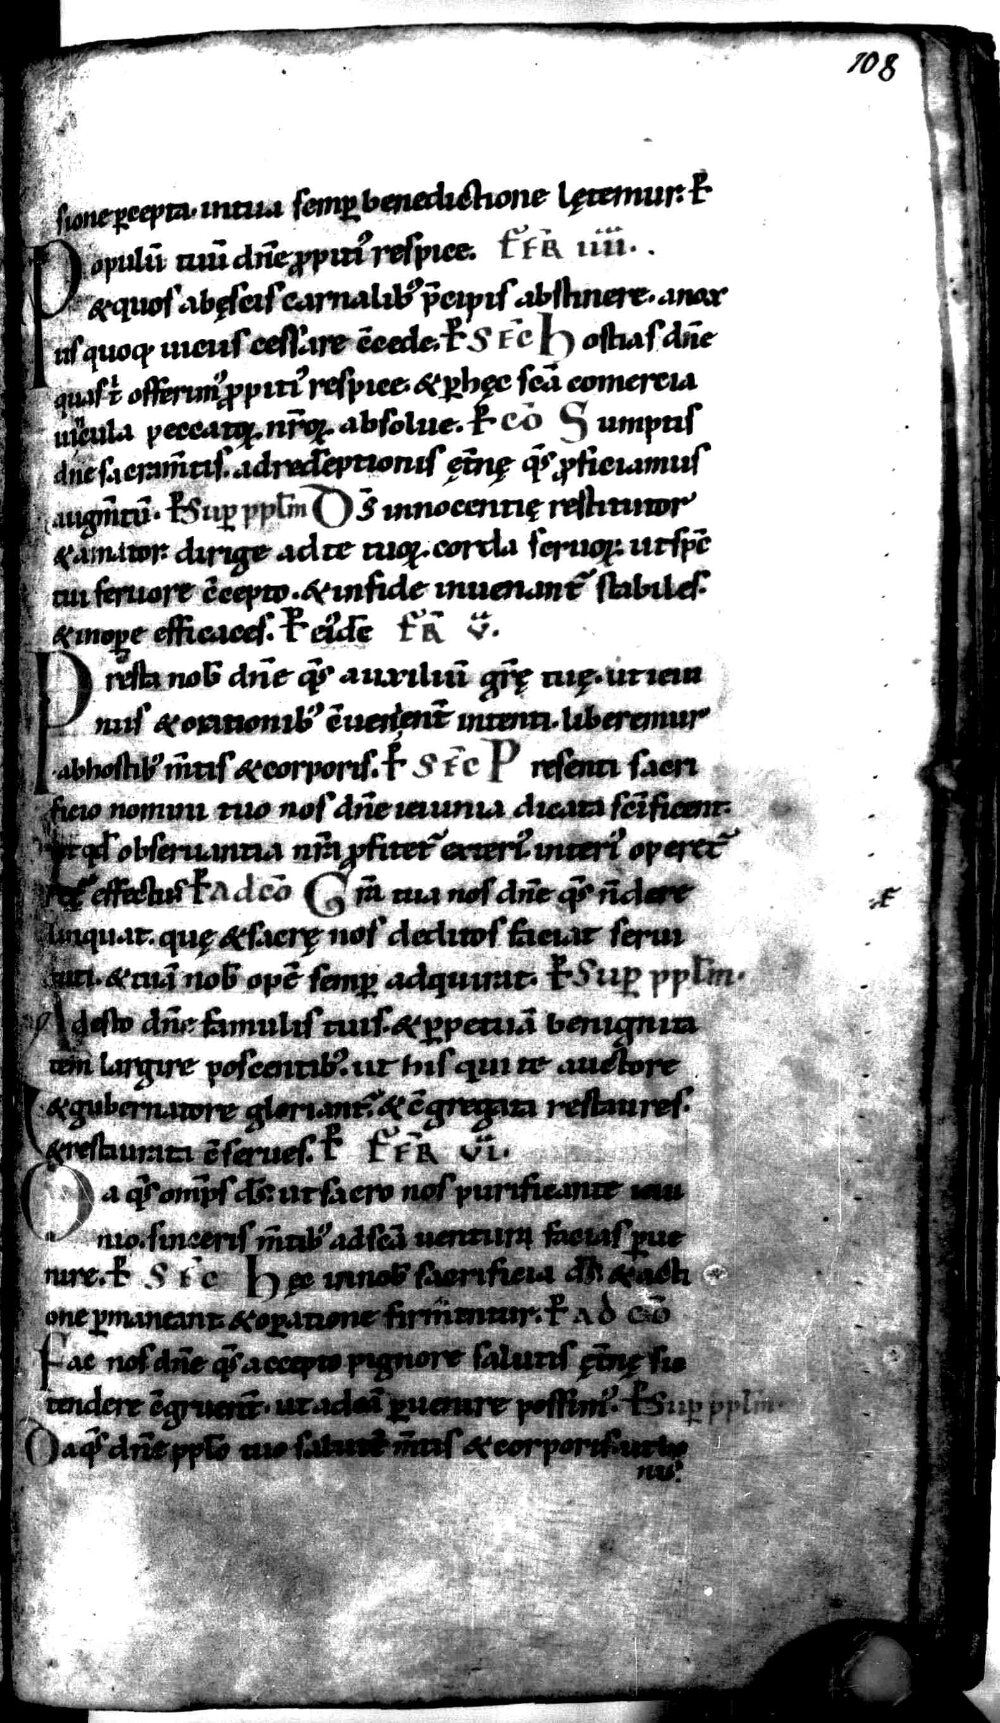 108
sione ꝑcepta· in tua semꝑ benedictione lętemur· ꝑ
Populū tuū dn̄e ꝓpitiꝰ respice. F̄R̄ IIII.
& quos ab ęscis carnalibꝰ p̄cipis abstinere· a nox
iis quoq; uiciis cessare c̄cede. ꝑ SEC̄ Hostias dn̄e
quas t̄ offerimꝰ ꝓpitiꝰ respice· & ꝑ hęc sc̄a comercia
uincula peccatoꝝ nr̄oꝝ absolue. ꝑ CŌ Sumptis
dn̄e sacram̄tis. ad redēptionis ęt̄nę q̄s ꝓficiamus
augm̄tū. ꝑ Suꝑ pplm̄ D̄s innocentię restitutor
& amator· dirige ad te tuoꝝ corda seruoꝝ· ut sp̄c
tui feruore c̄cepto· & in fide inueniant̄ stabiles·
& in oꝑe efficaces. ꝑ eūdē F̄R̄ V̄.
Presta nob̄ dn̄e q̄s auxiliū gr̄ę tuę· ut ieiu
niis & orationibꝰ c̄uenient̄ intenti· liberemur
ab hostibꝰ m̄tis & corporis. ꝑ SEC̄ Presenti sacri
ficio nomini tuo nos dn̄e ieiunia dicata sc̄ificent·
ut qd̄ obseruantia nr̄a ꝓfitet̄ exteriꝰ· interiꝰ operet̄
effectus ꝑ AD CŌ Gr̄a tua nos dn̄e q̄s n̄ dere
linquat· quę & sacrę nos deditos faciat serui
tuti· & tuā nob̄ opē semꝑ adquirat· ꝑ Suꝑ pplm̄.
Adesto dn̄e famulis tuis· & ꝑpetuā benignita
tem largire poscentibꝰ· ut his qui te auctore
& gubernatore gloriant̄· & c̄gregata restaures·
& restaurata c̄serues. ꝑ F̄R̄ VI.
Da q̄s om̄ps d̄s· ut sacro nos purificante ieiu
nio· sinceris m̄tibꝰ ad sc̄a uentura facias ꝑue
nire. ꝑ SEC̄ Hęc in nob̄ sacrificia d̄s & acti
one ꝑmaneant· & oꝑatione firm̄tur. ꝑ AD CŌ
Fac nos dn̄e q̄s accepto pignore salutis ęt̄nę sic
tendere c̄gruent̄· ut ad eā ꝑuenire possimꝰ. ꝑ Suꝑ pplm̄
Da q̄s dn̄e pplō tuo salutē m̄tis & corporis· ut bo
nis